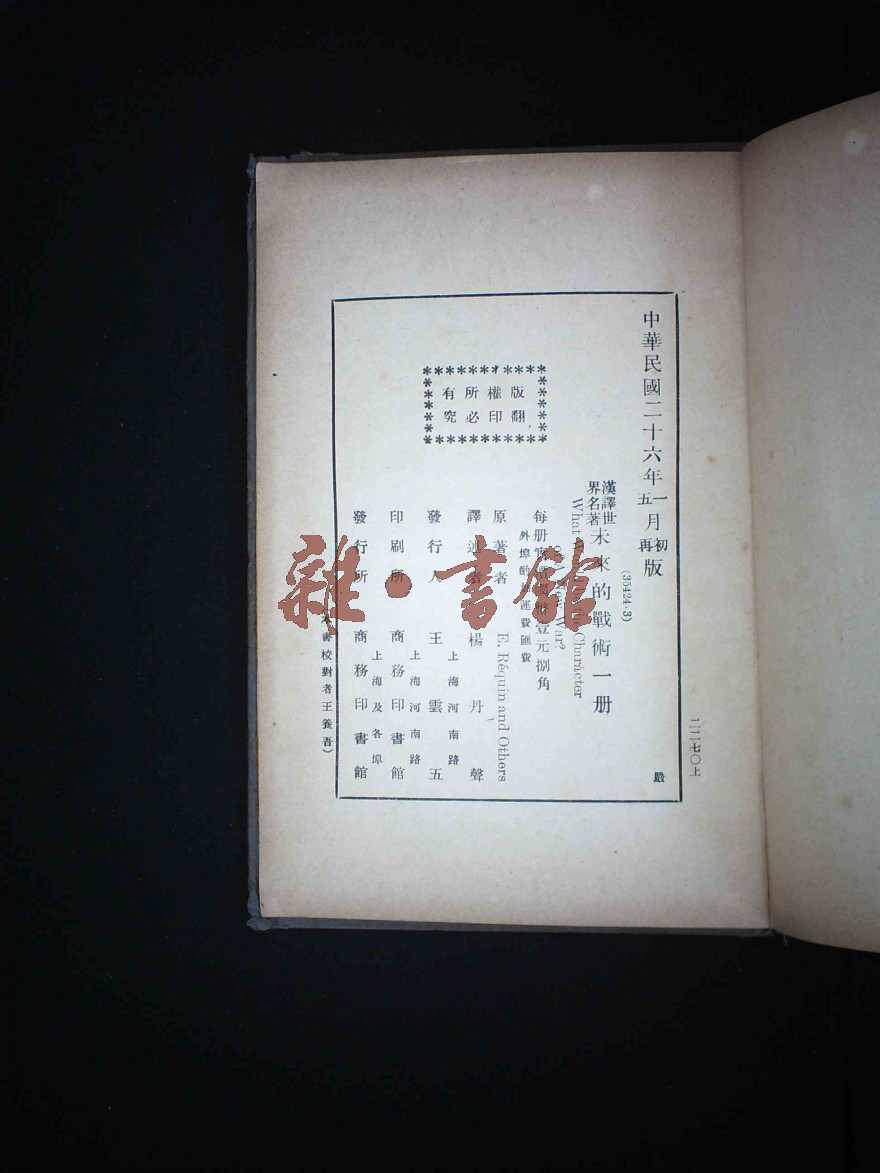 二二七〇上
中華民國二十六年一月初版
五再
嚴
(35424·3)
漢譯世界名著 未來的戰術 一册
What Would Be the Character
of a New War?
每册實價國幣壹元捌角
外埠酌加運費匯費
版權所有
翻印必究
原著者 E. Réquin and Others
譯述者 楊丹聲
上海河南路
發行人 王雲五
上海河南路
印刷所 商務印書館
上海及各埠
發行所 商務印書館
本書校對者王養吾)
雜·書館